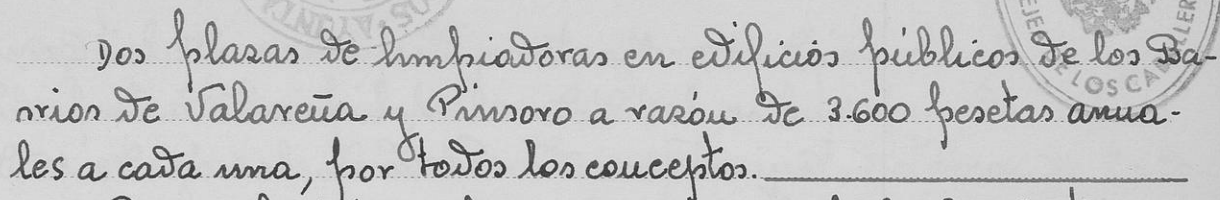 Dos plazas de limpiadoras en edificios públicos de los Ba-
rrios de Valareña y Pinsoro a razón de 3.600 pesetas anua-
les a cada una, por todos los conceptos.
EJE
DE LOS CABALLER
AYUNTA